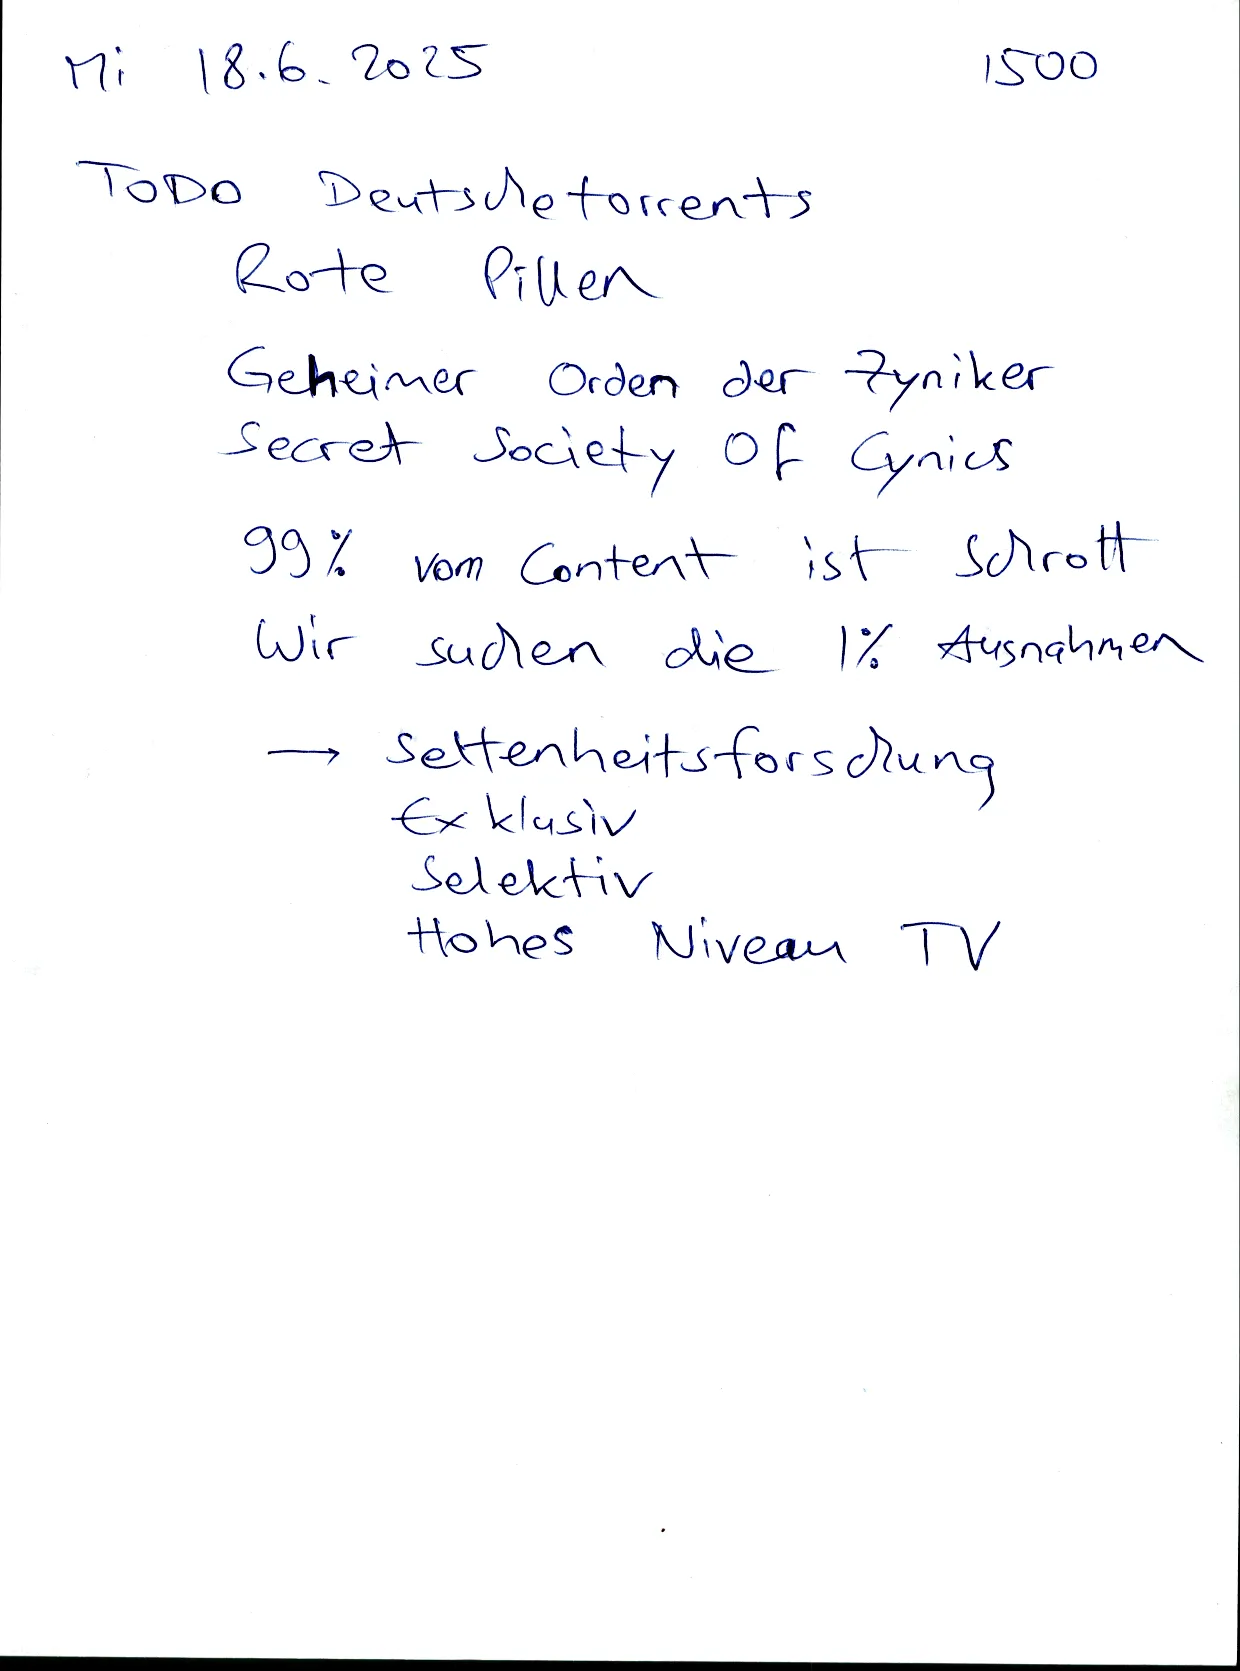 Mi 18.6.2025 1500
TODO Deutschetorrents
Rote Pillen
Geheimer Orden der Zyniker
Secret Society Of Cynics
99% vom Content ist Schrott
Wir suchen die 1% Ausnahmen
→ Seltenheitsforschung
Exklusiv
Selektiv
Hohes Niveau TV